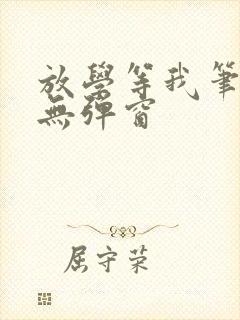 放學等我筆
無彈窗
屈守荣